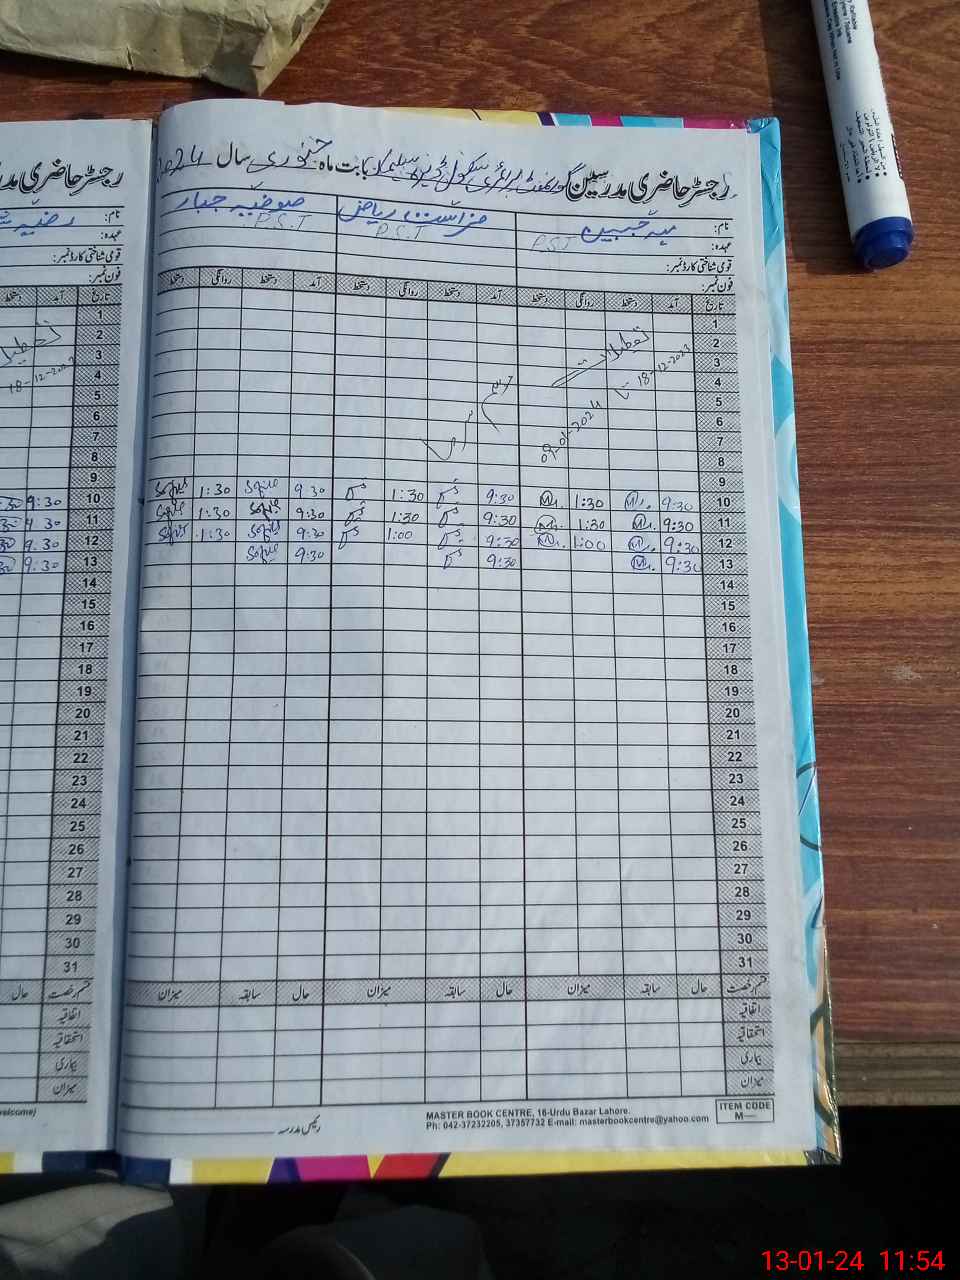 رجسٹر حاضری مدرسین گورنمنٹ پرائمری سکول بابت ماہ جنوری سال 2024
نام: مہ جبین فراست ریاض صوفیہ جبار
عہدہ: P.S.T P.S.T P.S.T
قومی شناختی کارڈ نمبر:
فون نمبر:
تاریخ آمد دستخط روانگی دستخط آمد دستخط روانگی دستخط آمد دستخط روانگی دستخط
1
2
3
4
5
6
7
8
تعطیلات
18-12-2023
09-01-2024
موسم سرما
9
10 9:30 1:30 9:30 1:30 9:30 1:30
11 9:30 1:30 9:30 1:30 9:30 1:30
12 9:30 1:00 9:30 1:00 9:30 1:30
13 9:30 9:30 9:30
14
15
16
17
18
19
20
21
22
23
24
25
26
27
28
29
30
31
قسم رخصت حال سابقہ میزان حال سابقہ میزان حال سابقہ میزان
اتفاقیہ
استحقاقیہ
بیماری
میزان
رئیس مدرسہ
MASTER BOOK CENTRE, 16-Urdu Bazar Lahore.
Ph: 042-37232205, 37357732 E-mail: masterbookcentre@yahoo.com
ITEM CODE
M—
رجسٹر حاضری مدر
نام: رضیہ
عہدہ:
قومی شناختی کارڈ نمبر:
فون نمبر:
تاریخ آمد دستخط
1
2
3
4
5
6
7
8
تعطیلا
18-12-2023
9
10 9:30
11 9:30
12 9:30
13 9:30
14
15
16
17
18
19
20
21
22
23
24
25
26
27
28
29
30
31
قسم رخصت حال
اتفاقیہ
استحقاقیہ
بیماری
میزان
welcome)
13-01-24 11:54